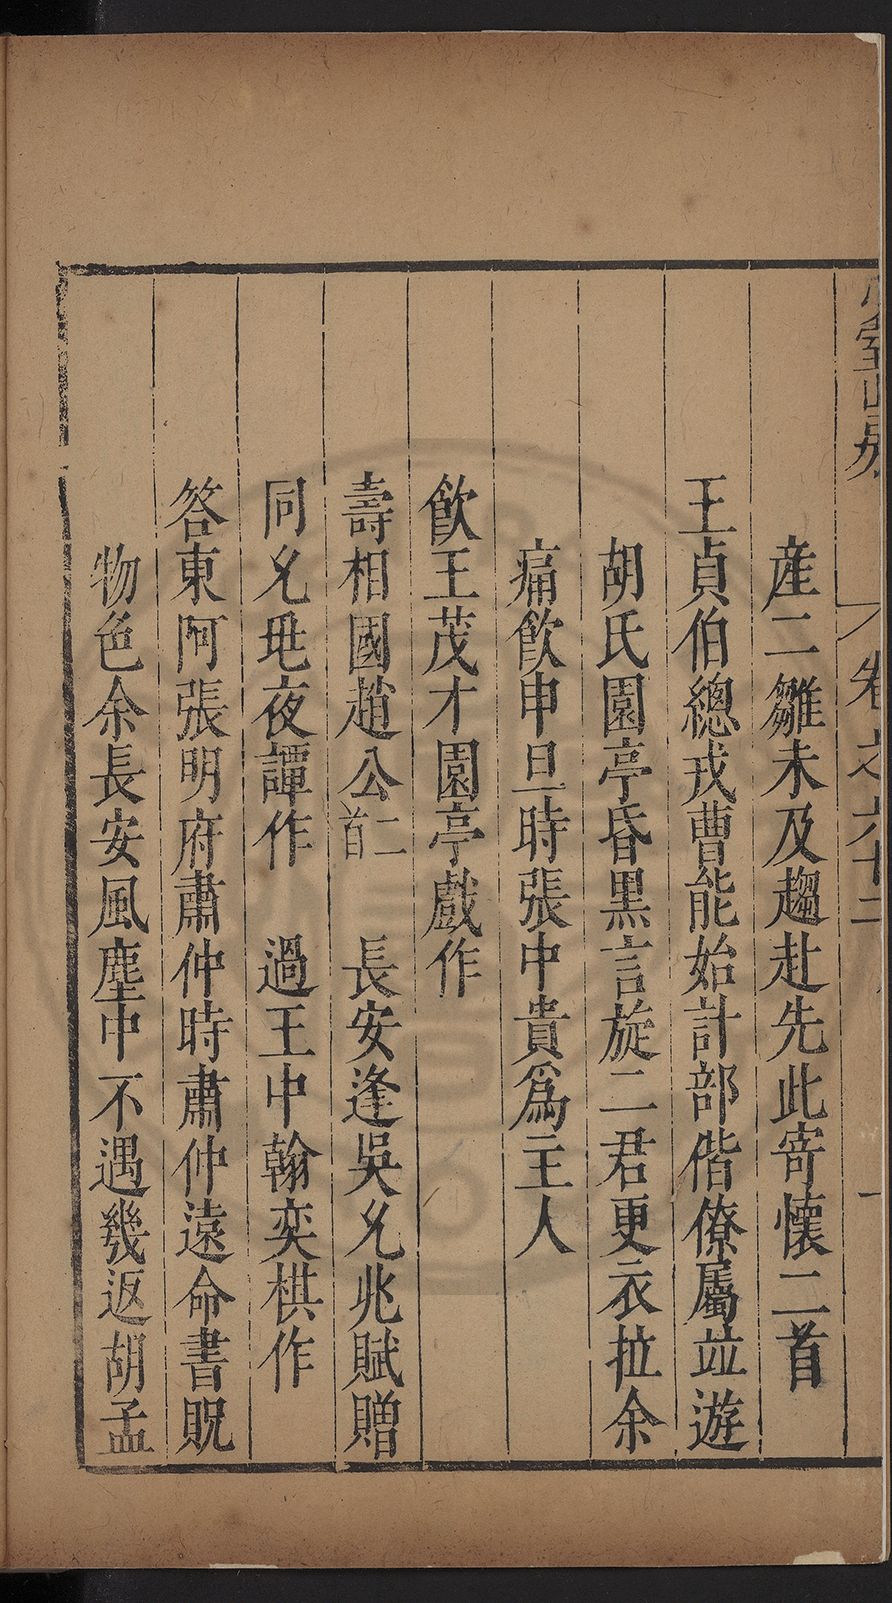 少室山房
卷之六十二
一
産二雛未及趨赴先此寄懷二首
王貞伯總戎曹能始計部偕僚屬竝遊
胡氏園亭昏黑言旋二君更衣拉余
痛飲申旦時張中貴爲主人
飲王茂才園亭戲作
壽相國趙公二首　長安逢吳允兆賦贈
同允兆夜譚作　過王中翰奕棋作
答東阿張明府肅仲時肅仲遠命書貺
物色余長安風塵中不遇幾返胡孟